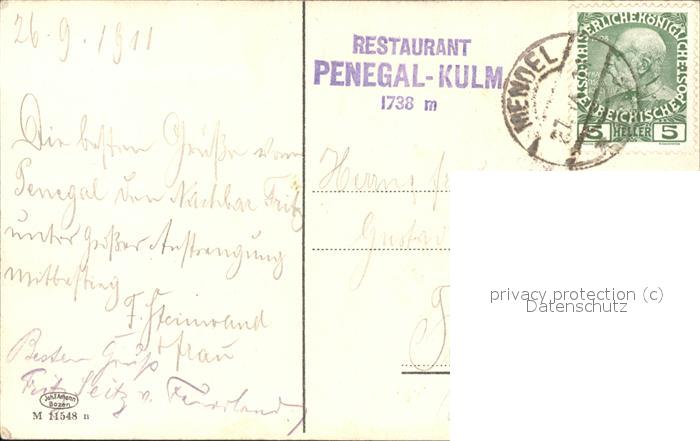 26.9.1911
Die besten Grüße vom
Penegal den Nachbar Fritz
unter großer Anstrengung
mitbestieg
F. Steinwand
u frau
Besten Gruß
Fritz Seitz v.
Joh. F. Amonn
Bozen
M 11548 n
RESTAURANT
PENEGAL-KULM
1738 m
MENDEL
KAISERLICHEKÖNIGLICHE
ÖSTERREICHISCHE
5 HELLER 5
Herrn
Gustav
privacy protection (c)
Datenschutz